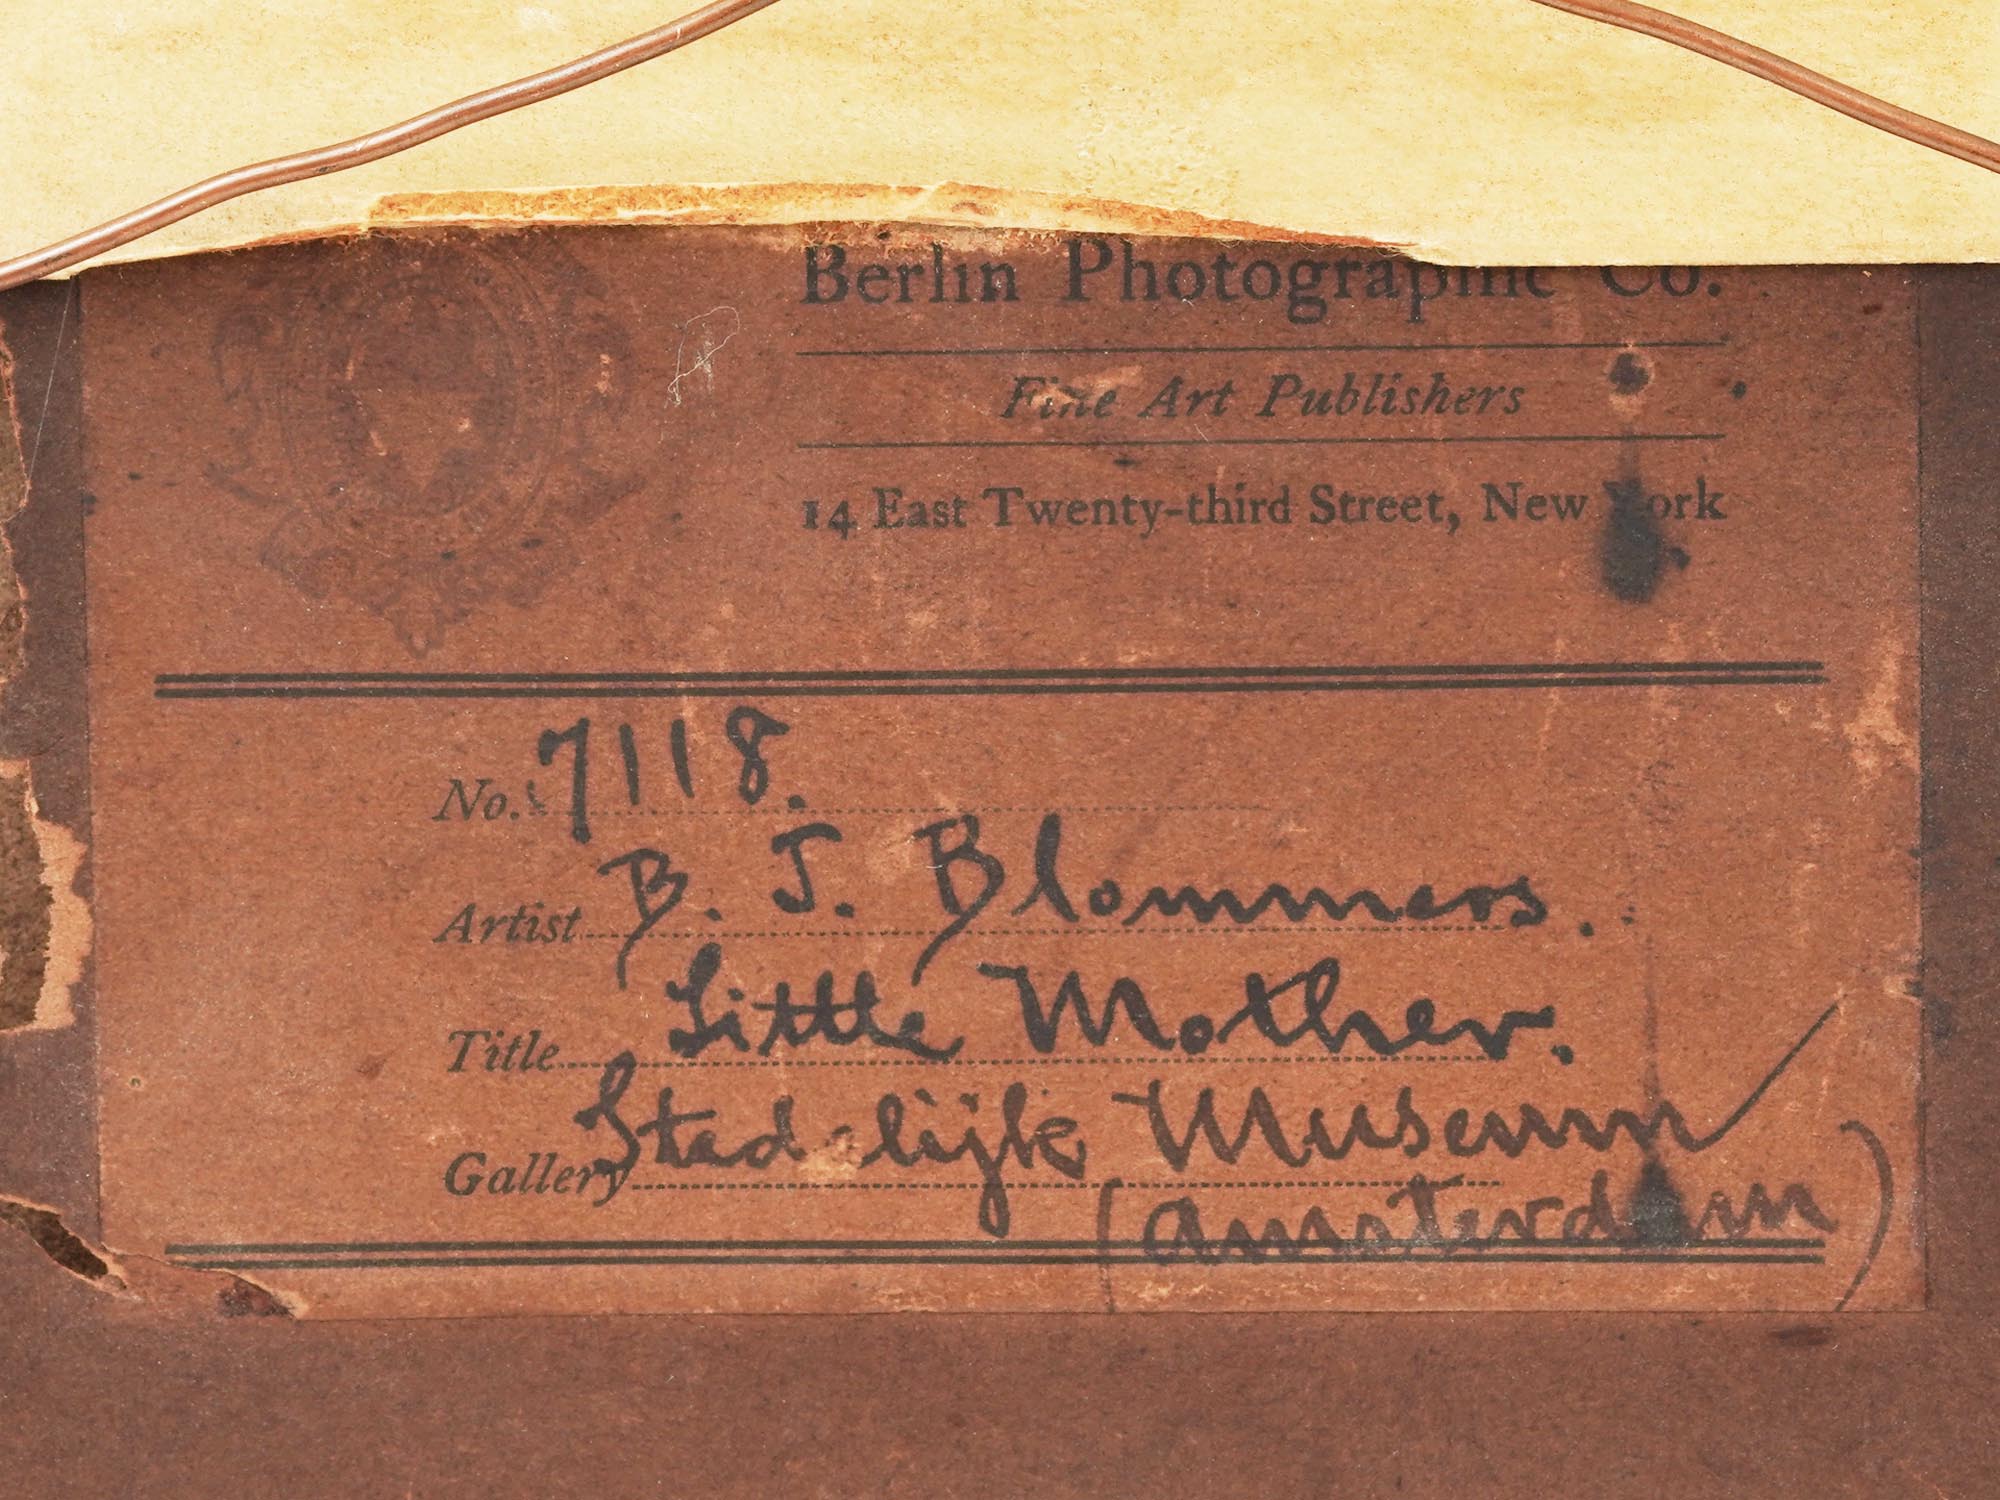 Berlin Photographic Co.
Fine Art Publishers
14 East Twenty-third Street, New York
No. 7118.
Artist B. J. Blommers.
Title Little Mother.
Gallery Stedelijk Museum
(Amsterdam)